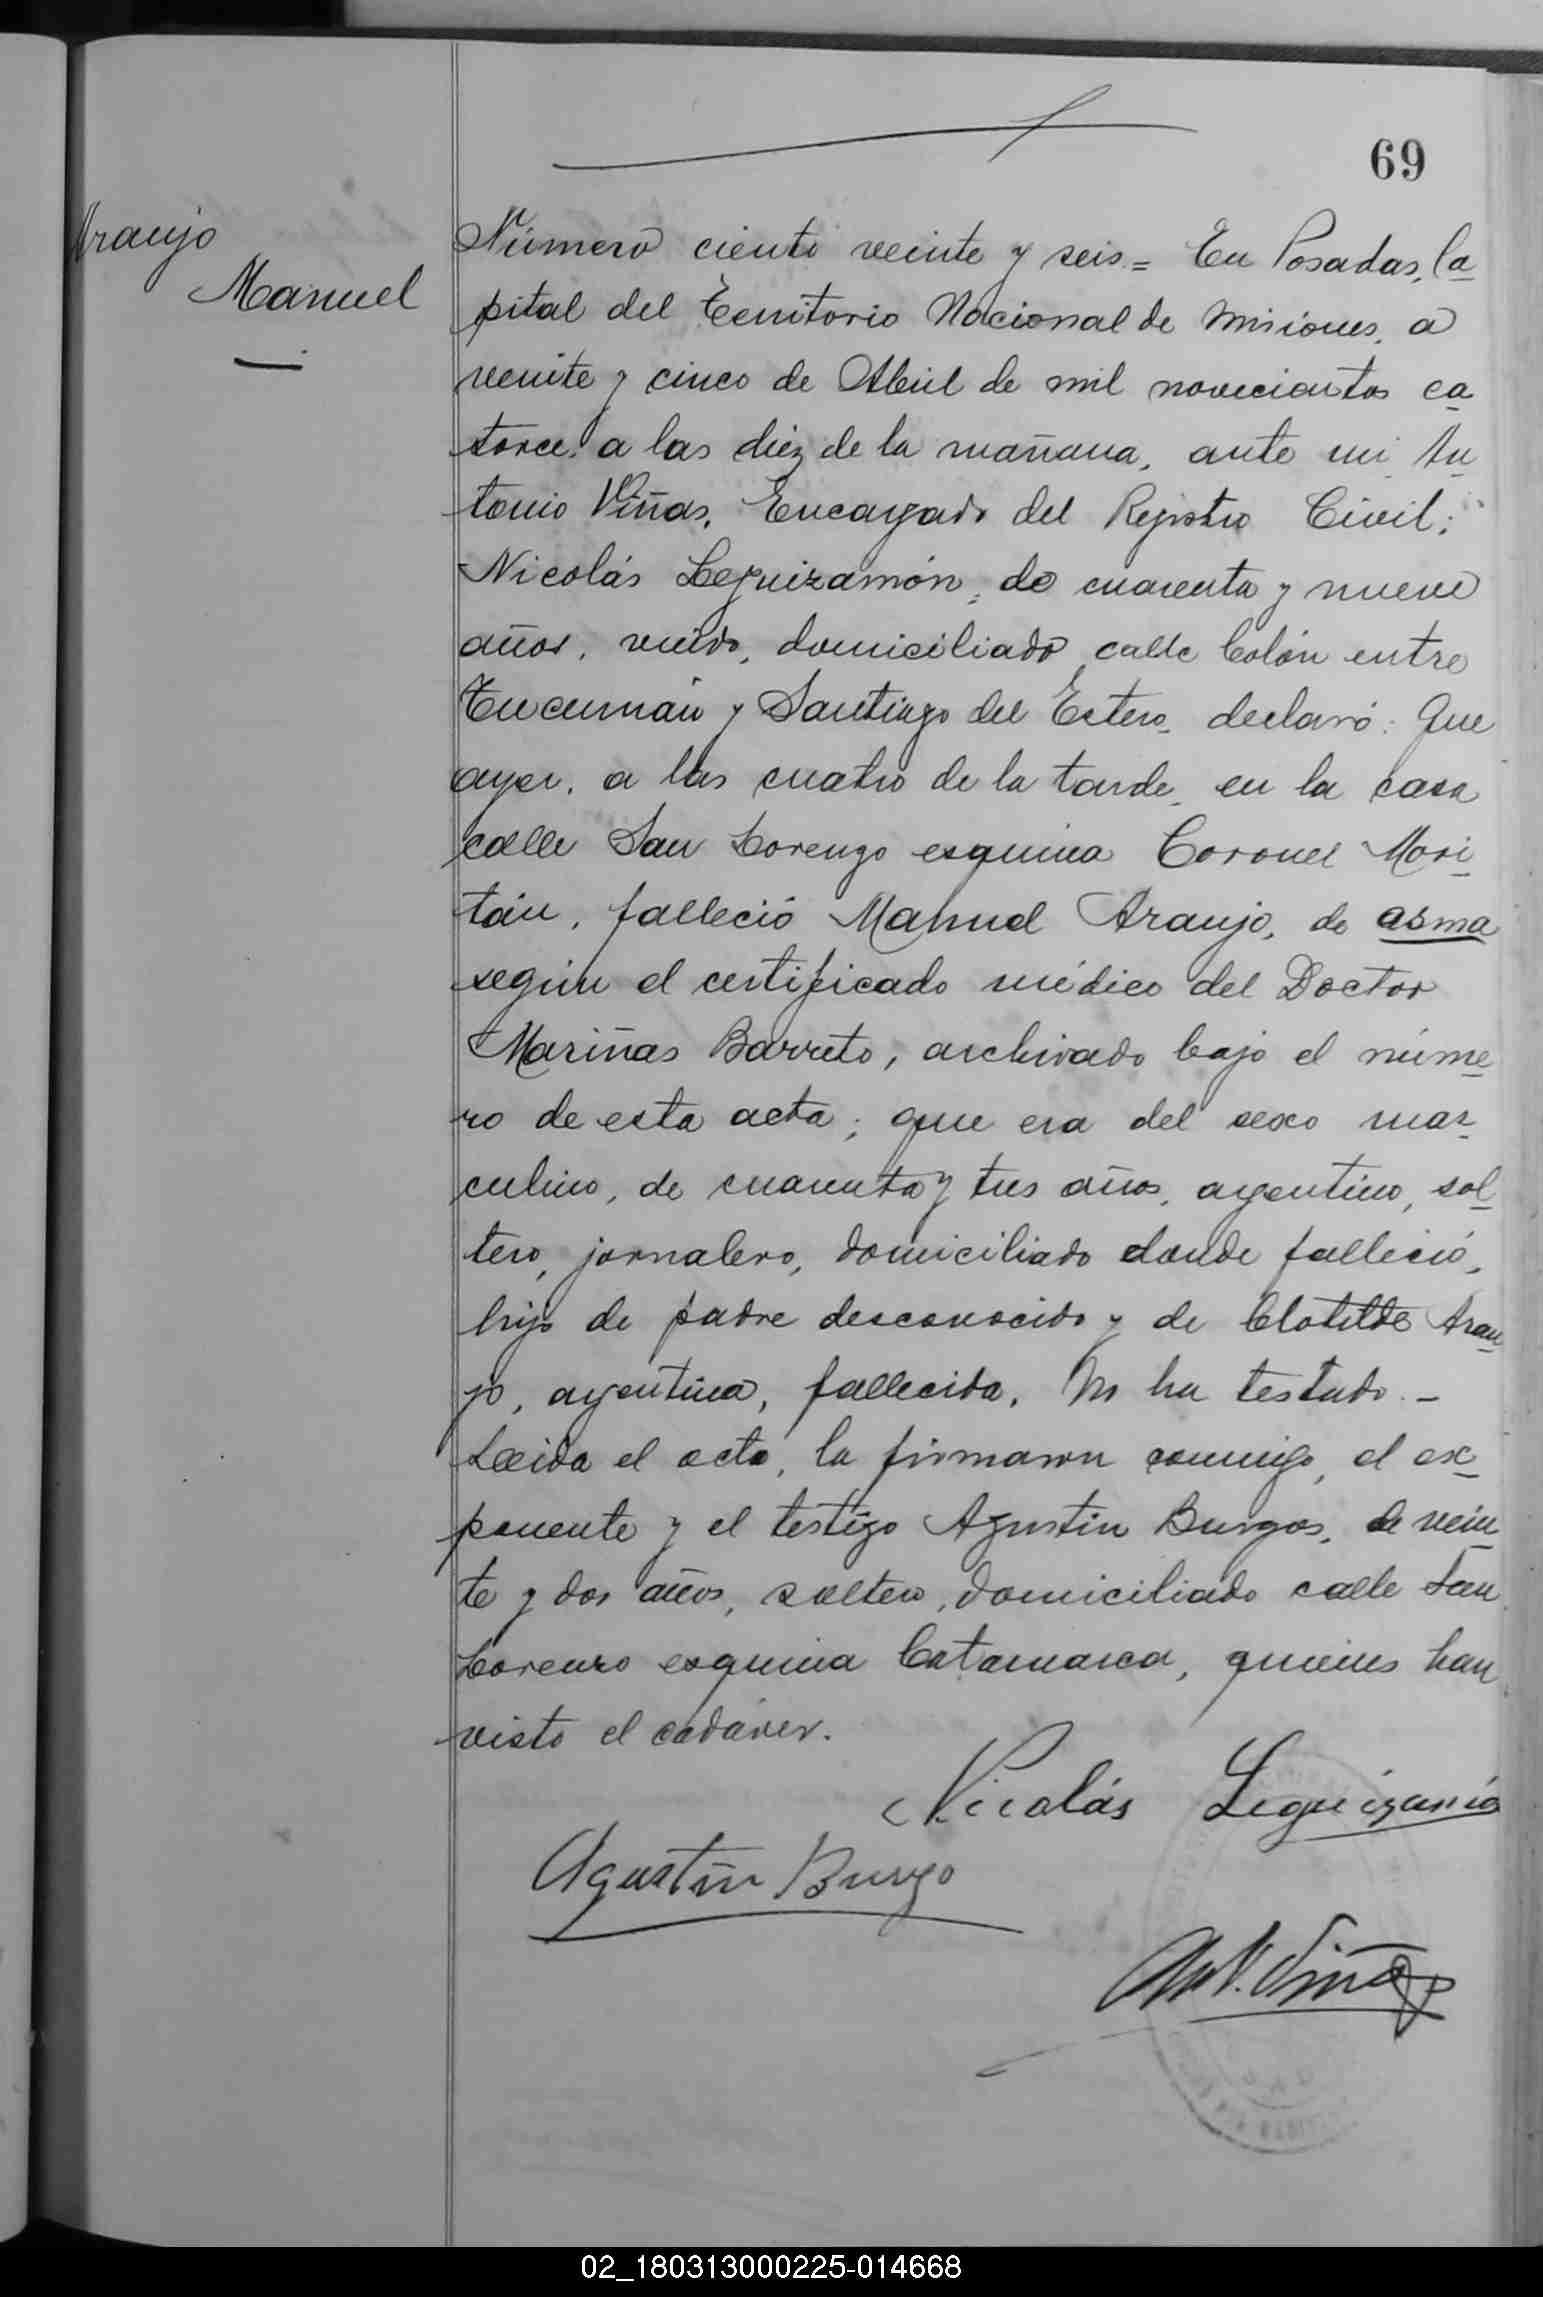 69
Araujo
Manuel
Número ciento veinte y seis = En Posadas, Ca
pital del Territorio Nacional de Misiones, a
veinte y cinco de Abril de mil novecientos ca
torce, a las diez de la mañana, ante mi An
tonio Viñas, Encargado del Registro Civil;
Nicolás Leguizamón, de cuarenta y nueve
años, viudo, domiciliado calle Colón entre
Tucumán y Santiago del Estero, declaró: Que
ayer, a las cuatro de la tarde, en la casa
calle San Lorenzo esquina Coronel Mori
tán, falleció Manuel Araujo, de asma
según el certificado médico del Doctor
Mariñas Barreto, archivado bajo el núme
ro de esta acta; que era del sexo mas
culino, de cuarenta y tres años, argentino, sol
tero, jornalero, domiciliado donde falleció,
hijo de padre desconocido y de Clotilde Arau
jo, argentina, fallecida. No ha testado. -
Leida el acta, la firmaron conmigo, el ex
ponente y el testigo Agustin Burgos, de vein
te y dos años, soltero, domiciliado calle San
Lorenzo esquina Catamarca, quienes han
visto el cadáver.
Nicolás Leguizamó
Agustin Burgo
Ant. Viñas
02_180313000225-014668